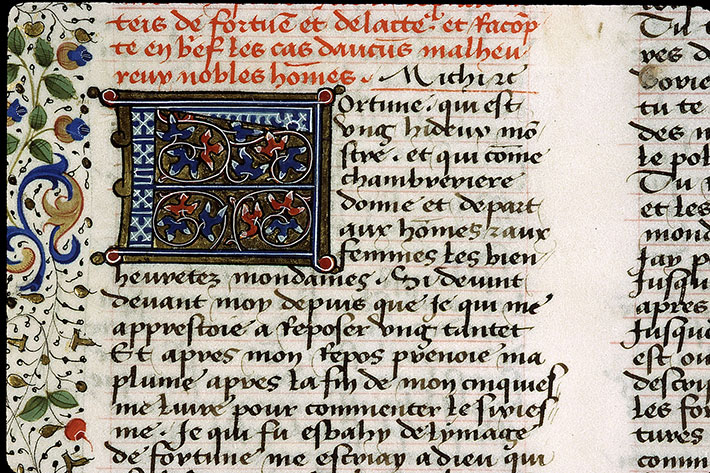 teis de fortuē et delacteꝰ. et Racōp
te en bief les cas daucus malheu
reux nobles hōmes. Michi re
Fortune. qui est
vng hideux mō
stre. et qui cōme
chambreriere
donne et depart
aux hōmes z aux
femmes les bien
heuretez mondaines. Si deuint
deuant moy depuis que Je qui me
apprestoie a Reposer vng tantet
Et apres mon Repos prenoie ma
plume apres la fin de mon cinquies
me liure pour commenter le sixies
me. Je qui fu esbahy de lymage
de fortune me escriay a dieu qui
Tu t
res d
tu te
des m
le pol
Tu
et les
mond
Jay p
Jusqu
apres
Jusque
est ou
descrip
Les for
tures
comm